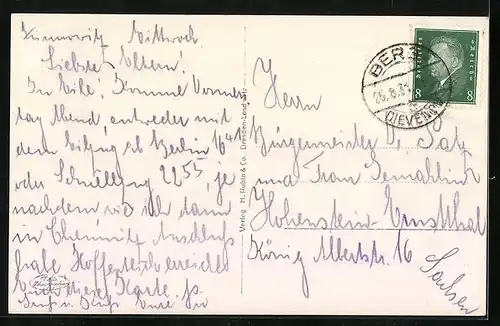 Zinnowitz, Mittwoch.
Liebste Eltern!
In Eile! Komme Donners-
tag Abend, entweder mit
dem Eilzug ab Berlin 16 41
oder Schnellzug 2255, je
nachdem, wie ich dann
in Chemnitz Anschluss
habe. Hoffentlich erreicht
Euch diese Karte
Gruss u. Kuss Eure
Verlag M. Rubin & Co. Dresden-
BERG
26.8.31
(DIEVENOW)
Deutsches Reich
8 8
Herrn
Bürgermeister Dr. Patz
und Frau Gemahlin
Hohenstein-Ernstthal
König Albertstr. 16
Sachsen